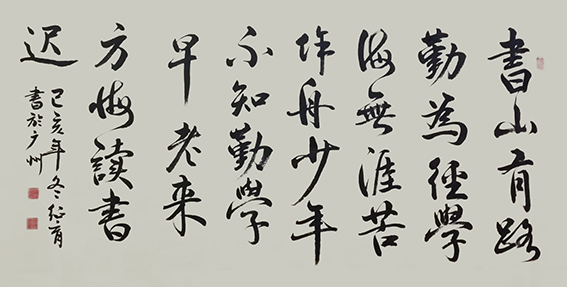 書山有路
勤為徑學
海無涯苦
作舟少年
不知勤學
早老来
方悔讀書
迟
己亥年冬
書於广州